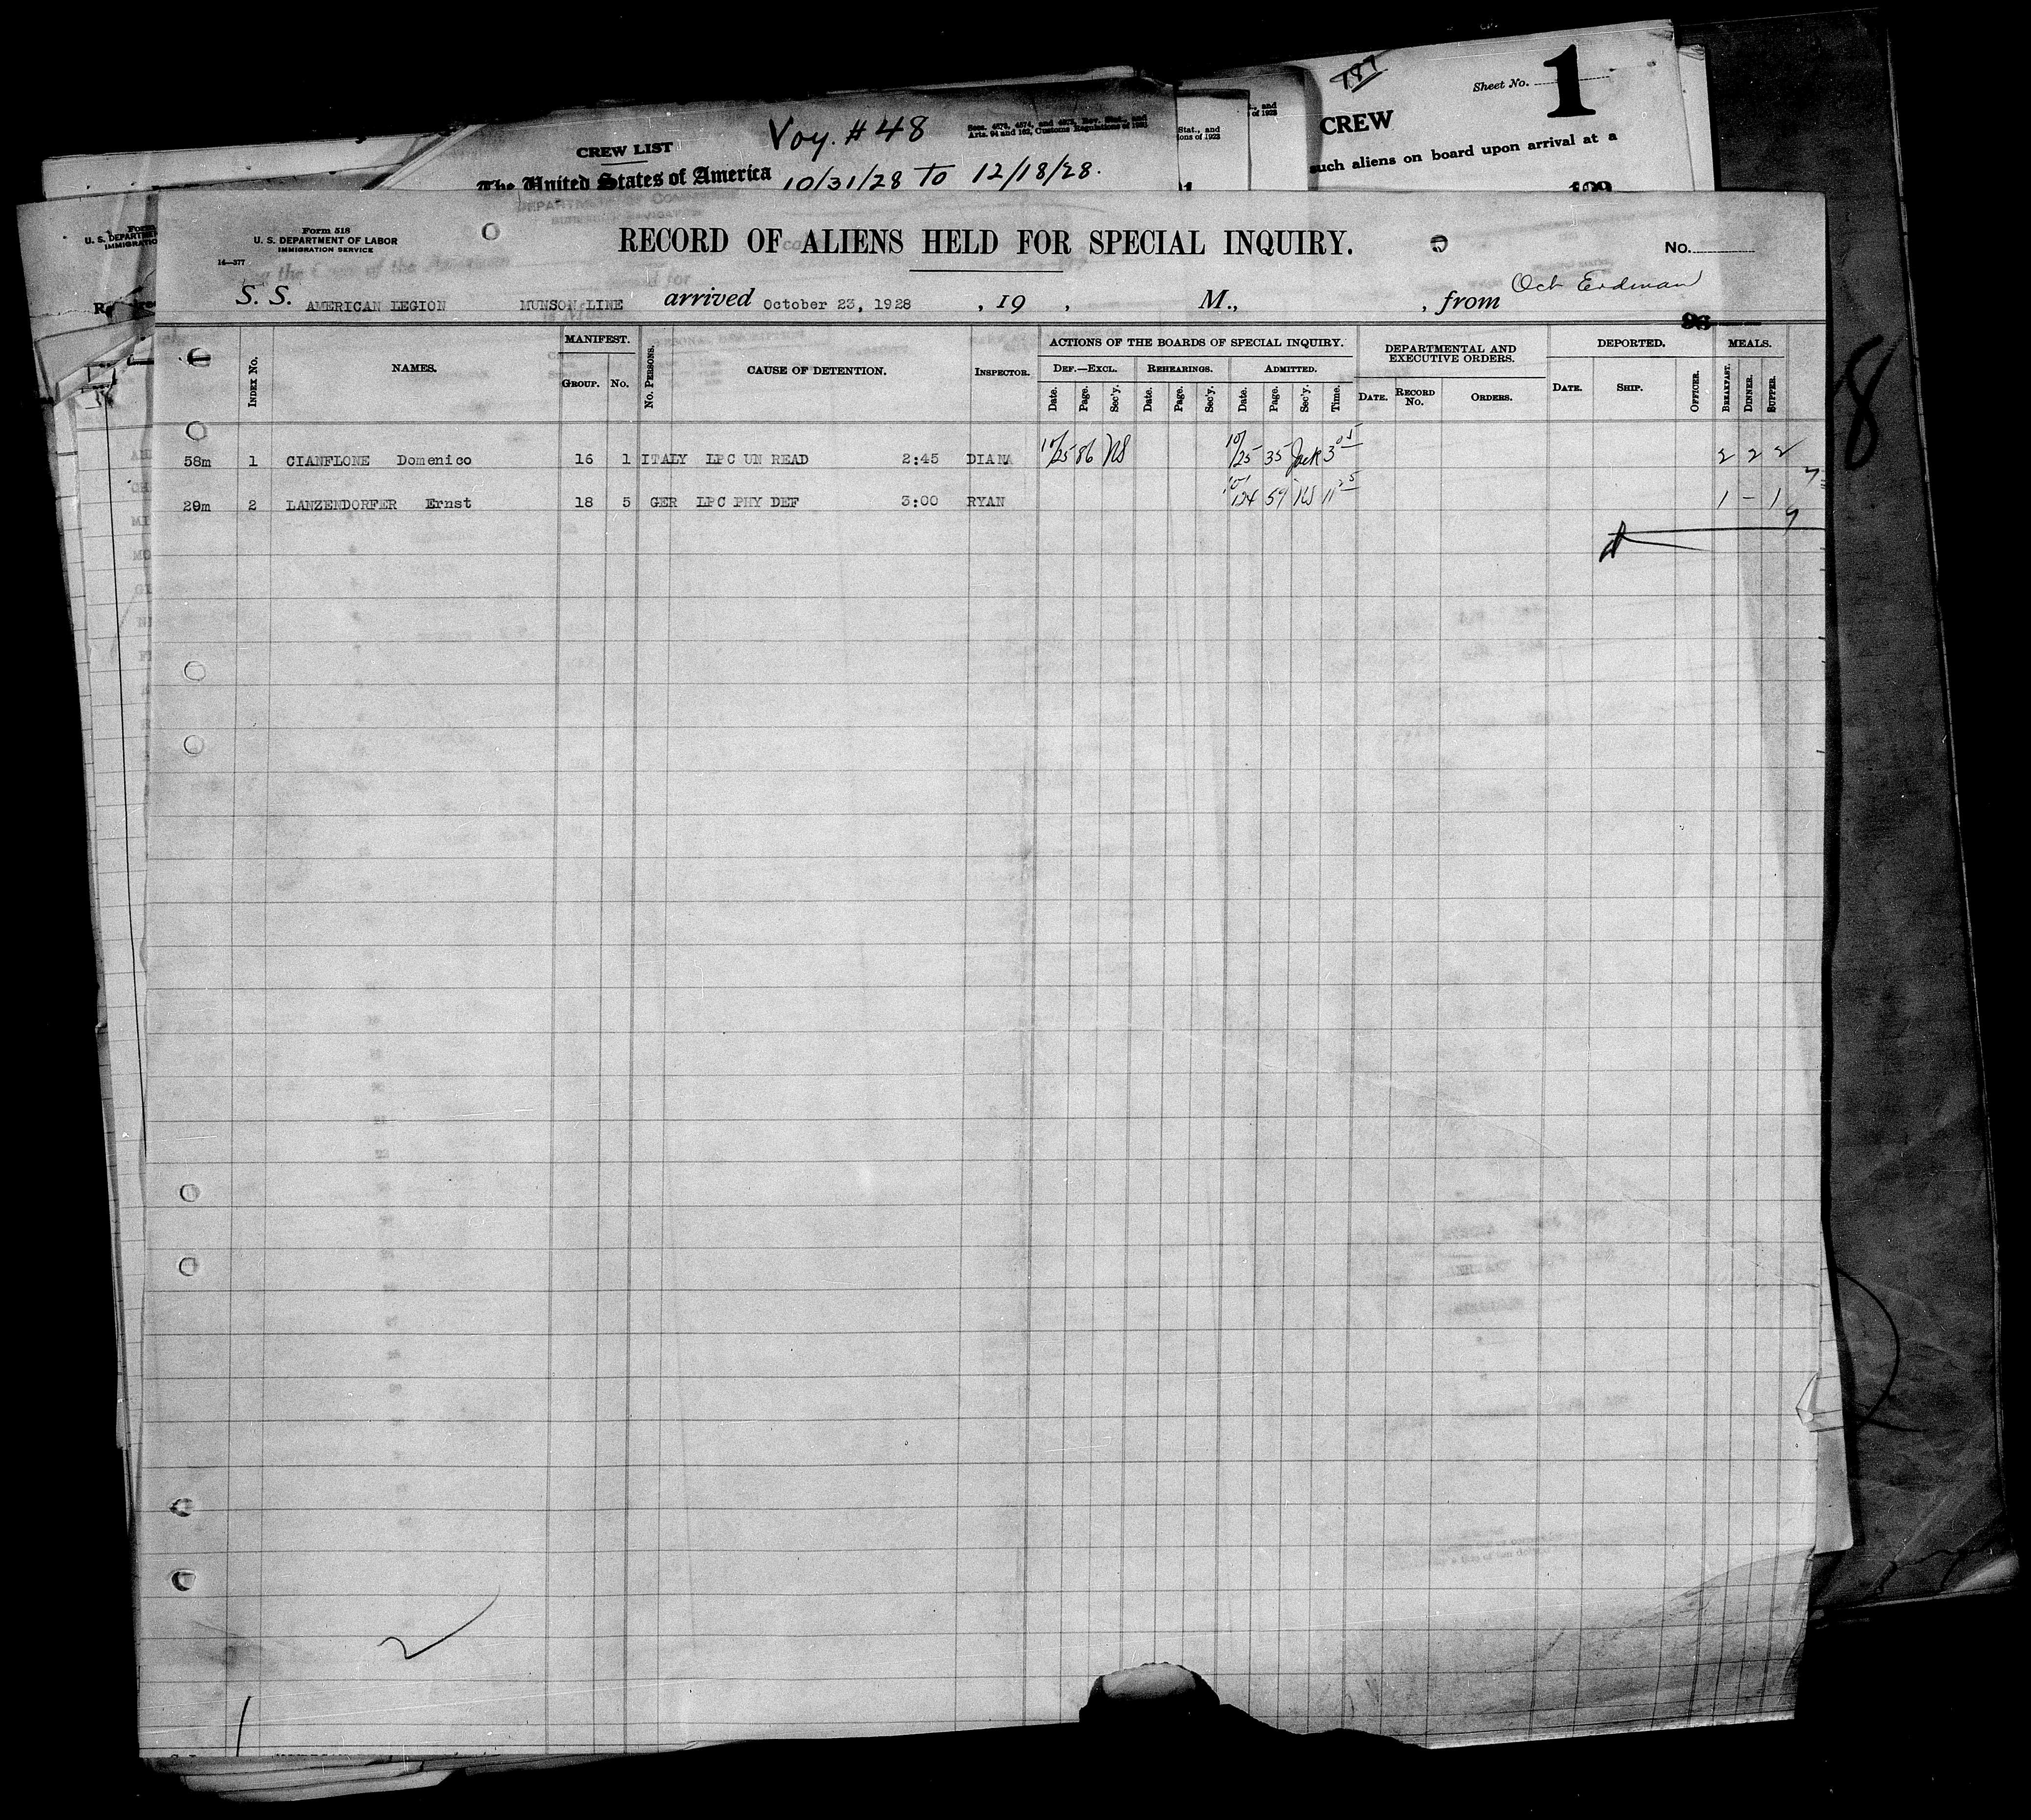 187
Sheet No. 1
CREW
such aliens on board upon arrival at a
Stat., and
ions of 1923
CREW LIST
Voy. # 48
Secs. 4573, 4574, and 4575, Rev. Stat., and
Arts. 94 and 162, Customs Regulations of 1923
The United States of America
10/31/28 TO 12/18/28.
Form 518
U. S. DEPARTMENT OF LABOR
IMMIGRATION SERVICE
14—377
RECORD OF ALIENS HELD FOR SPECIAL INQUIRY.
No.
S. S. AMERICAN LEGION MUNSON LINE arrived October 23, 1928 , 19 , M., , from Oct Erdman
96
INDEX NO. NAMES. MANIFEST. GROUP. NO. NO. PERSONS. CAUSE OF DETENTION. INSPECTOR.
ACTIONS OF THE BOARDS OF SPECIAL INQUIRY. DEF.—EXCL. Date. Page. Sec'y. REHEARINGS. Date. Page. Sec'y. ADMITTED. Date. Page. Sec'y. Time.
DEPARTMENTAL AND EXECUTIVE ORDERS. DATE. RECORD NO. ORDERS.
DEPORTED. DATE. SHIP. OFFICER.
MEALS. BREAKFAST. DINNER. SUPPER.
58m 1 CIANFLONE Domenico 16 1 ITALY LPC UN READ 2:45 DIANA 10/25 86 NS 10/25 35 Jack 3 05 2 2 2
29m 2 LANZENDORFER Ernst 18 5 GER LPC PHY DEF 3:00 RYAN 10/24 59 NS 11 25 1 — 1
2
8